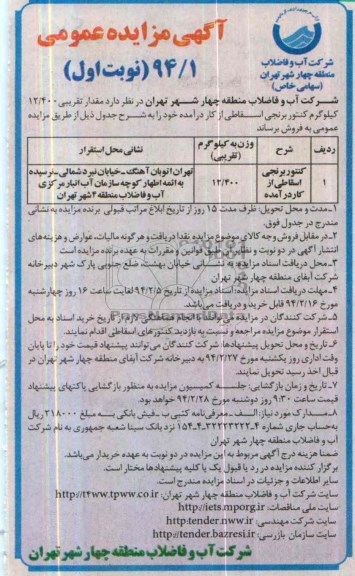 آگهی مزایده عمومی
۹۴/۱ (نوبت اول)
شرکت آب و فاضلاب
منطقه چهار شهر تهران
(سهامی خاص)
شرکت آب و فاضلاب منطقه چهار شهر تهران در نظر دارد مقدار تقریبی ۱۲/۴۰۰
کیلوگرم کنتور برنجی اسقاطی از کار درآمده خود را به شرح جدول ذیل از طریق مزایده
عمومی به فروش برساند.
ردیف شرح وزن به کیلوگرم (تقریبی) نشانی محل استقرار
۱ کنتور برنجی اسقاطی از کار درآمده ۱۲/۴۰۰ تهران اتوبان آهنگ-خیابان نبرد شمالی-نرسیده به ائمه اطهار کوچه سازمان آب انبار مرکزی آب و فاضلاب منطقه ۴ شهر تهران
۱-مدت و محل تحویل: ظرف مدت ۱۵ روز از تاریخ ابلاغ مراتب قبولی برنده مزایده به نشانی
مندرج در جدول فوق.
۲-در مقابل فروش وجه کالای موضوع مزایده نقدا دریافت و هرگونه مالیات، عوارض و هزینه های
انتشار آگهی در دو نوبت و نظایر آن طبق قوانین و مقررات به عهده برنده مزایده است
۳-محل دریافت اسناد مزایده به نشانی خیابان بهشت، ضلع جنوبی پارک شهر دبیرخانه
شرکت آبفای منطقه چهار شهر تهران
۴-مهلت دریافت اسناد مزایده: اسناد مزایده از تاریخ ۹۴/۲/۵ لغایت ساعت ۱۶ روز چهارشنبه
مورخ ۹۴/۲/۱۶ قابل خرید و دریافت می باشد.
۵-شرکت کنندگان در مزایده می بایست با انجام هماهنگی لازم از تاریخ خرید اسناد به محل
استقرار موضوع مزایده مراجعه و نسبت به بازدید کنتورهای اسقاطی اقدام نمایند.
۶-تاریخ و محل تحویل پیشنهادها: شرکت کنندگان می توانند پیشنهاد قیمت خود را تا پایان
وقت اداری روز یکشنبه مورخ ۹۴/۲/۲۷ به دبیرخانه شرکت آبفای منطقه چهار شهر تهران در
قبال اخذ رسید تحویل نمایند.
۷-تاریخ و زمان بازگشایی: جلسه کمیسیون مزایده به منظور بازگشایی پاکتهای پیشنهاد
قیمت ساعت ۹/۳۰ روز دوشنبه مورخ ۹۴/۲/۲۸ خواهد بود.
۸-مدارک مورد نیاز: الف-معرفی نامه کتبی ب-فیش بانکی به مبلغ ۳۱۸۰۰۰ ریال
به حساب جاری شماره ۱۵۴-۴-۳۲۲۲۳۲۲۲-۴ نزد بانک سینا شعبه جمهوری به نام شرکت
آب و فاضلاب منطقه چهار شهر تهران
ضمنا هزینه درج آگهی مربوط به این مزایده در دو نوبت به عهده خریدار می باشد.
برگزار کننده مزایده در رد یا قبول یک یا کلیه پیشنهادها مختار است.
سایر اطلاعات و جزئیات در اسناد مزایده مندرج است.
سایت شرکت آب و فاضلاب منطقه چهار شهر تهران: http://t4ww.tpww.co.ir
سایت ملی مناقصات: http://iets.mporg.ir
سایت شرکت مهندسی: http:tender.nww.ir
سایت سازمان بازرسی: http://tender.bazresi.ir
شرکت آب و فاضلاب منطقه چهار شهر تهران